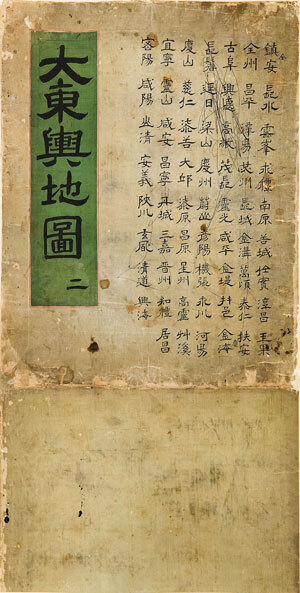 鎭安 長水 雲峯 求禮 南原 谷城 任實 淳昌 玉果
全州 昌平 潭昜 光州 長城 金溝 萬頃 泰仁 扶安
古阜 興德 高敞 茂長 靈光 咸平 金堤 井邑 金海
長鬐 延日 梁山 慶州 蔚山 彦陽 機張 永川 河昜
慶山 慈仁 漆谷 大邱 漆原 昌原 星州 高靈 艸溪
宜寧 靈山 咸安 昌寧 丹城 三嘉 晋州 知禮 居昌
密陽 咸陽 山清 安義 陜川 玄風 清道 興海
大東輿地圖 二